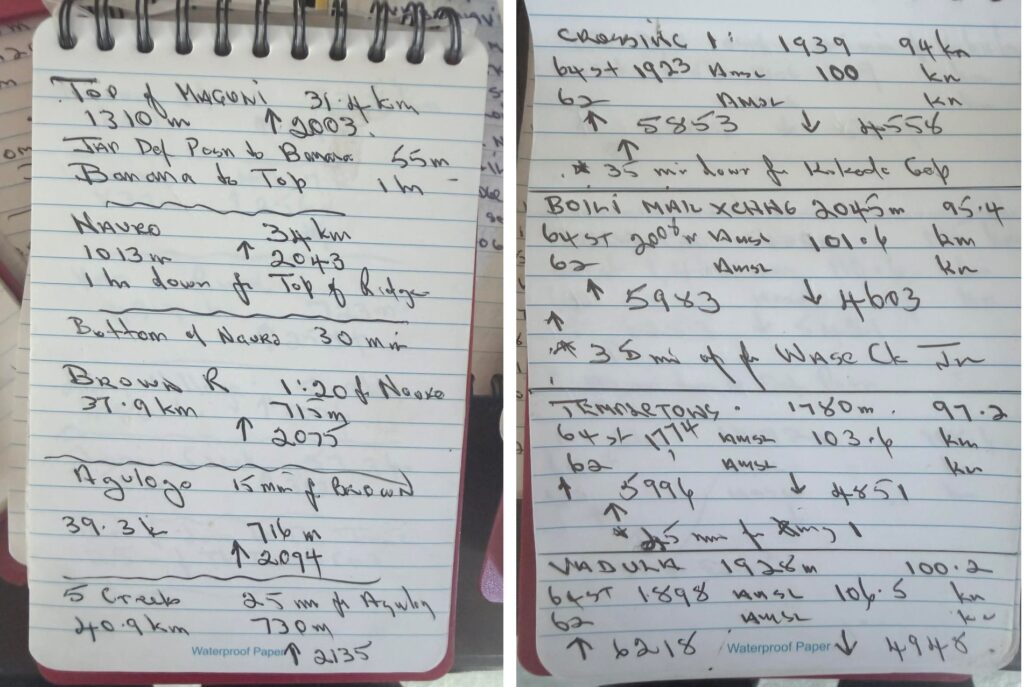 Top of MAGULI 31.4 km
1310 m ↑ 2003
JAP Def Posn to Banana 55m
Banana to Top 1 h
NAURO 34 km
1013 m ↑ 2043
1 hr down fr Top of Ridge
Bottom of Nauro 30 min
BROWN R 1:20 f Nauro
37.9 km 715m
↑ 2075
Agulogo 15 min f. BROWN
39.3 k 716 m
↑ 2094
5 Creeks 25 min fr Agulog
40.9 km 730m
Waterproof Paper ↑ 2135
CROSSING 1: 1939 94 km
64st 1923 AMSL 100 km
62 AMSL km
↑ 5853 ↓ 4558
* 35 min down fr Kokoda Gap
MAIL XCHNG 2045m 95.4
64ST m AMSL 101.6 km
62 AMSL km
↑ 5983 ↓ 4603
↑
* 35 min up fr Ck Jn
1780m. 97.2
64st 1774 AMSL 103.6 km
62 AMSL km
↑ 5996 ↓ 4851
↑
* min fr 1
1928m 100.2
64ST 1898 AMSL 106.5 km
62 AMSL km
↑ 6218 Waterproof Paper ↓ 4948